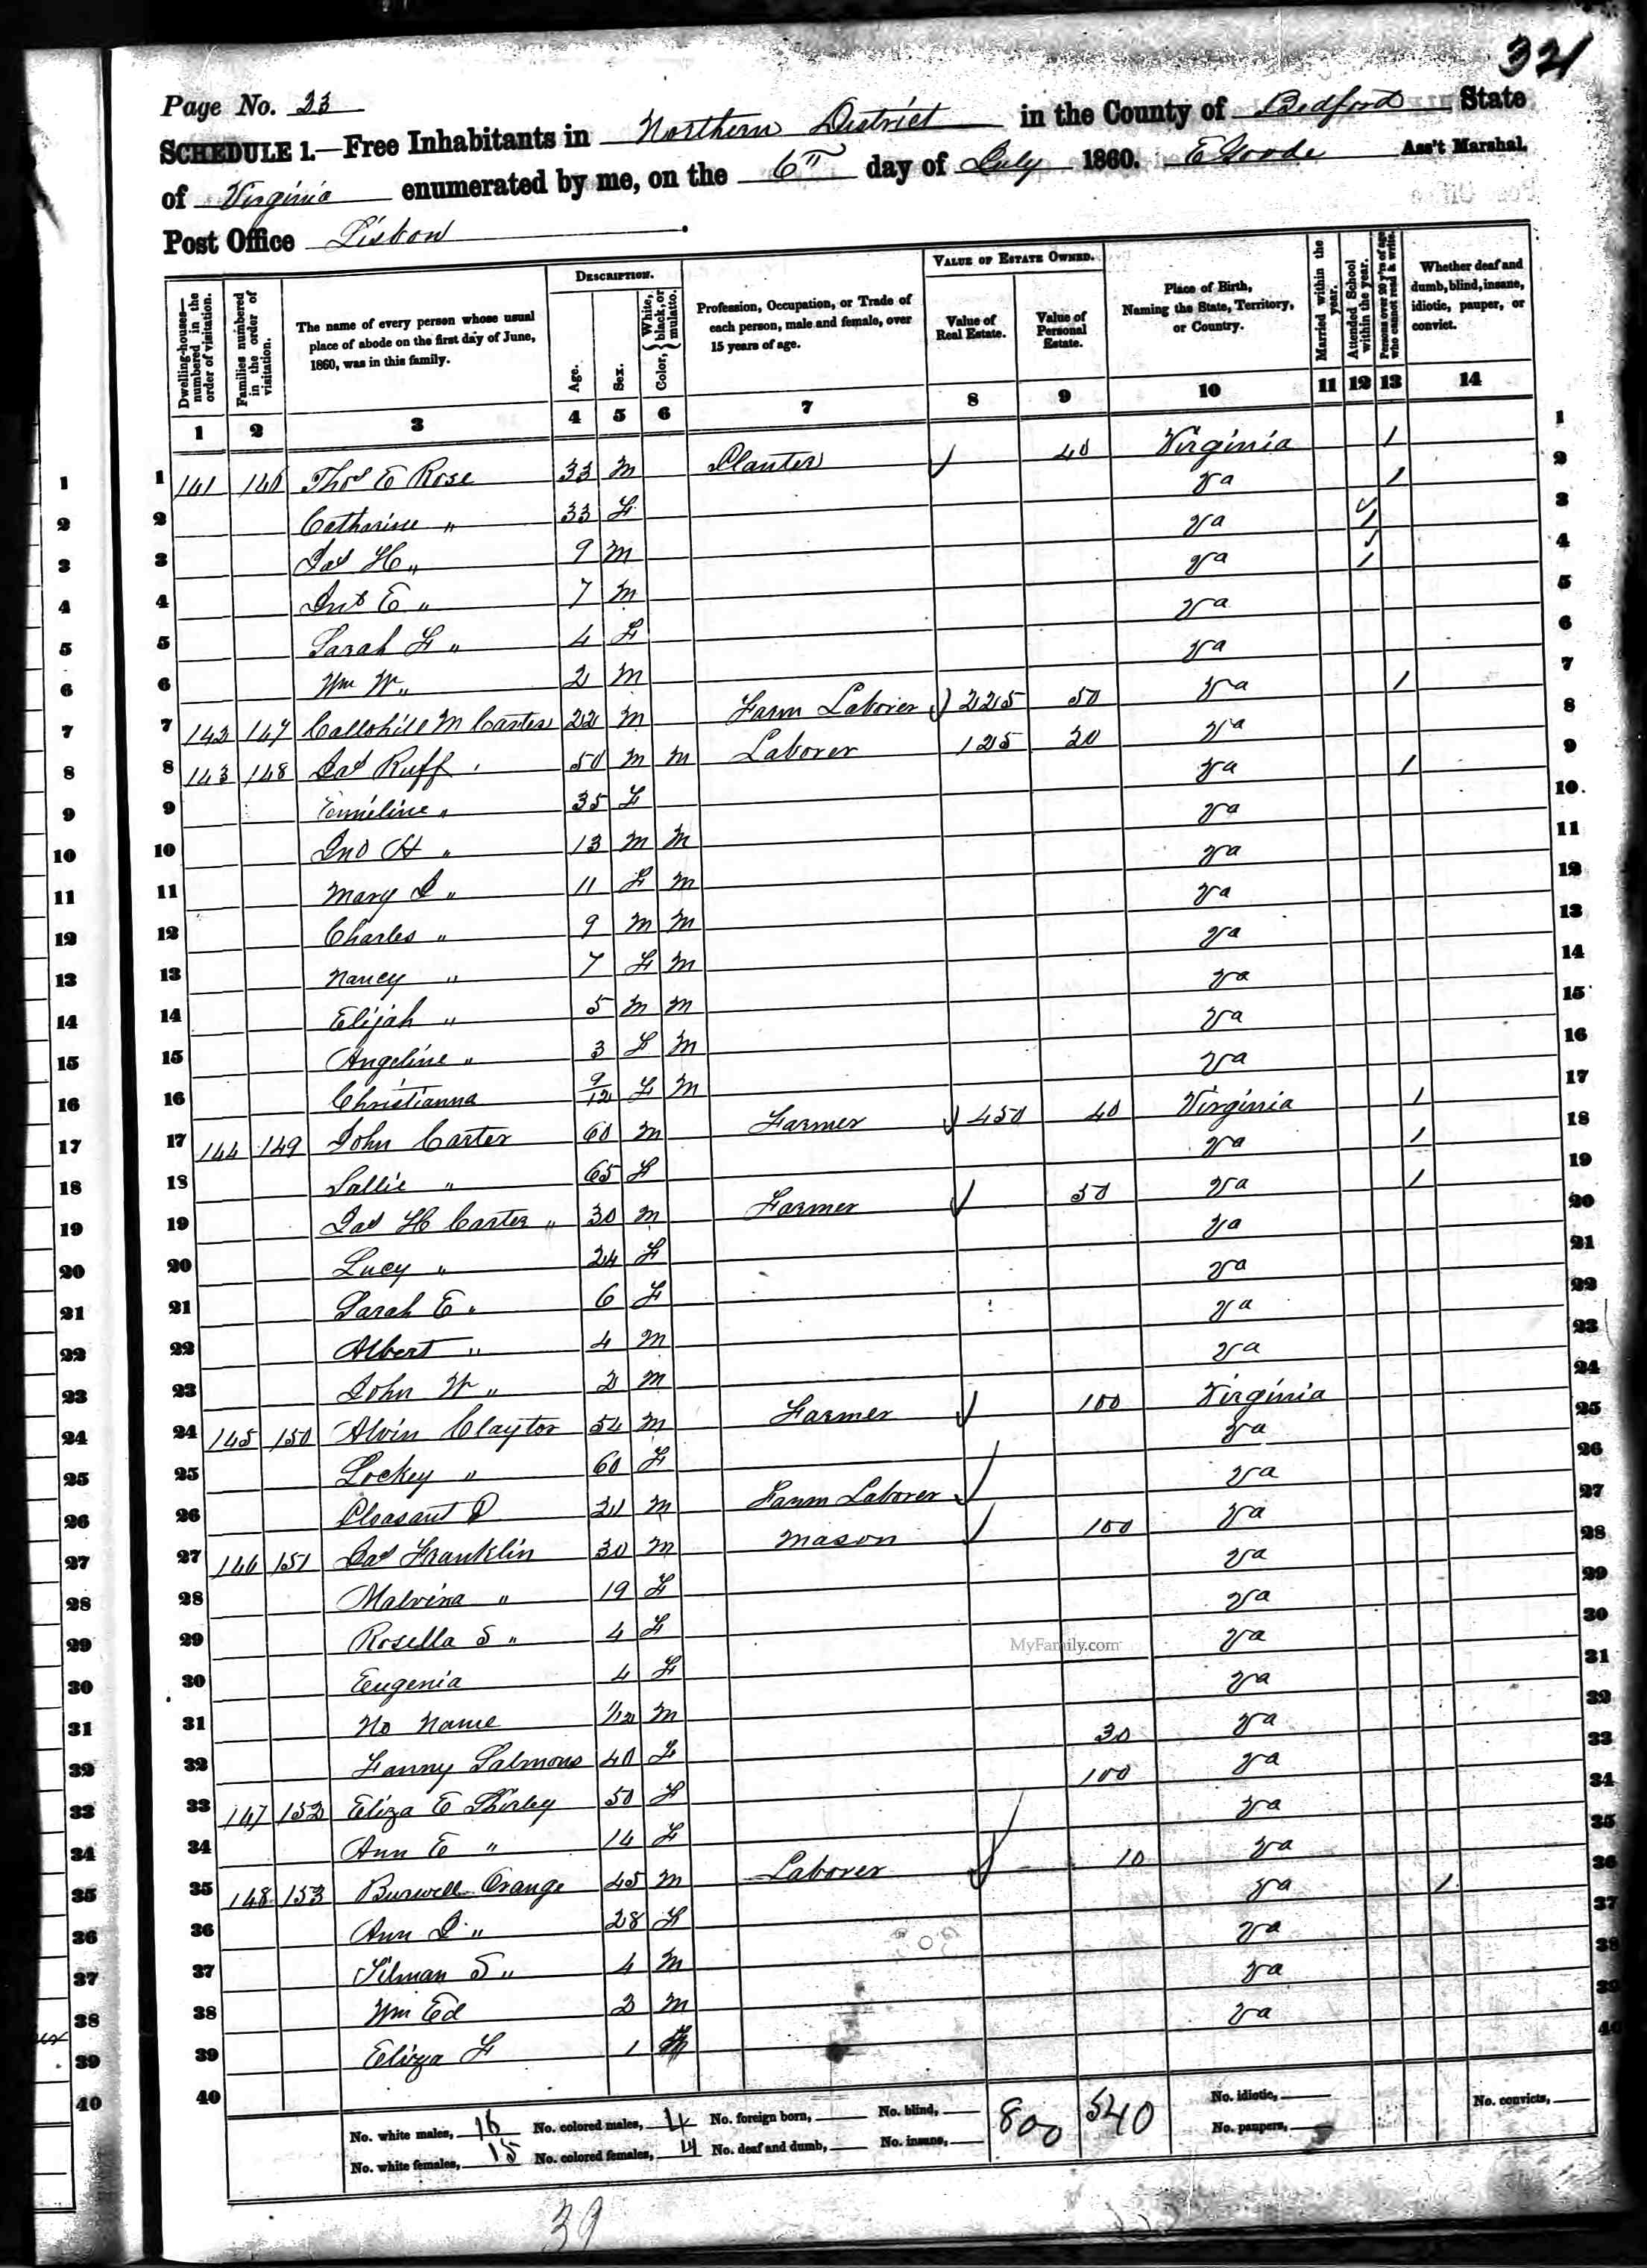 321
Page No. 23
SCHEDULE 1.—Free Inhabitants in Northern District in the County of Bedford State
of Virginia enumerated by me, on the 6th day of July 1860. E Goode Ass't Marshal.
Post Office Lisbon
DESCRIPTION. VALUE OF ESTATE OWNED.
Dwelling-houses—numbered in the order of visitation. Families numbered in the order of visitation. The name of every person whose usual place of abode on the first day of June, 1860, was in this family. Age. Sex. Color, White, black, or mulatto. Profession, Occupation, or Trade of each person, male and female, over 15 years of age. Value of Real Estate. Value of Personal Estate. Place of Birth, Naming the State, Territory, or Country. Married within the year. Attended School within the year. Persons over 20 y'rs of age who cannot read & write. Whether deaf and dumb, blind, insane, idiotic, pauper, or convict.
1 2 3 4 5 6 7 8 9 10 11 12 13 14
1 141 146 Thos E Rose 33 m Planter 40 Virginia / 1
2 Catharine " 33 F Va / 2
3 Jas H " 9 m Va / 3
4 Jno E " 7 m Va / 4
5 Sarah F " 4 F Va 5
6 Wm W " 2 m Va 6
7 142 147 Callohill M Carter 22 m Farm Laborer 225 50 Va / 7
8 143 148 Jas Ruff 50 m m Laborer 125 20 Va 8
9 Emeline " 35 F Va / 9
10 Jno H " 13 m m Va 10
11 Mary J " 11 F m Va 11
12 Charles " 9 m m Va 12
13 Nancy " 7 F m Va 13
14 Elijah " 5 m m Va 14
15 Angeline " 3 F m Va 15
16 Christianna 9/12 F m Va 16
17 144 149 John Carter 60 m Farmer 450 40 Virginia / 17
18 Sallie " 65 F Va / 18
19 Jas H Carter " 30 m Farmer 50 Va / 19
20 Lucy " 24 F Va 20
21 Sarah E " 6 F Va 21
22 Albert " 4 m Va 22
23 John W " 2 m Va 23
24 145 150 Alvin Claytor 54 m Farmer 100 Virginia 24
25 Lockey " 60 F Va 25
26 Pleasant D 21 m Farm Laborer Va 26
27 146 151 Jas Franklin 30 m Mason 100 Va 27
28 Malvina " 19 F Va 28
29 Rosella S " 4 F Va 29
30 Eugenia 4 F Va 30
31 No Name 1/12 m Va 31
32 Fanny Salmons 40 F 30 Va 32
33 147 152 Eliza E Shirley 50 F 100 Va 33
34 Ann E " 14 F Va 34
35 148 153 Burwell Orange 45 m Laborer 10 Va 35
36 Ann J " 28 F Va / 36
37 Tilman S " 4 m Va 37
38 Wm Ed 2 m Va 38
39 Eliza F 1 Va 39
40 40
No. white males, 16 No. colored males, 4 No. foreign born, No. blind, 800 540 No. idiotic, No. convicts,
No. white females, 15 No. colored females, 4 No. deaf and dumb, No. insane, No. paupers,
39
MyFamily.com